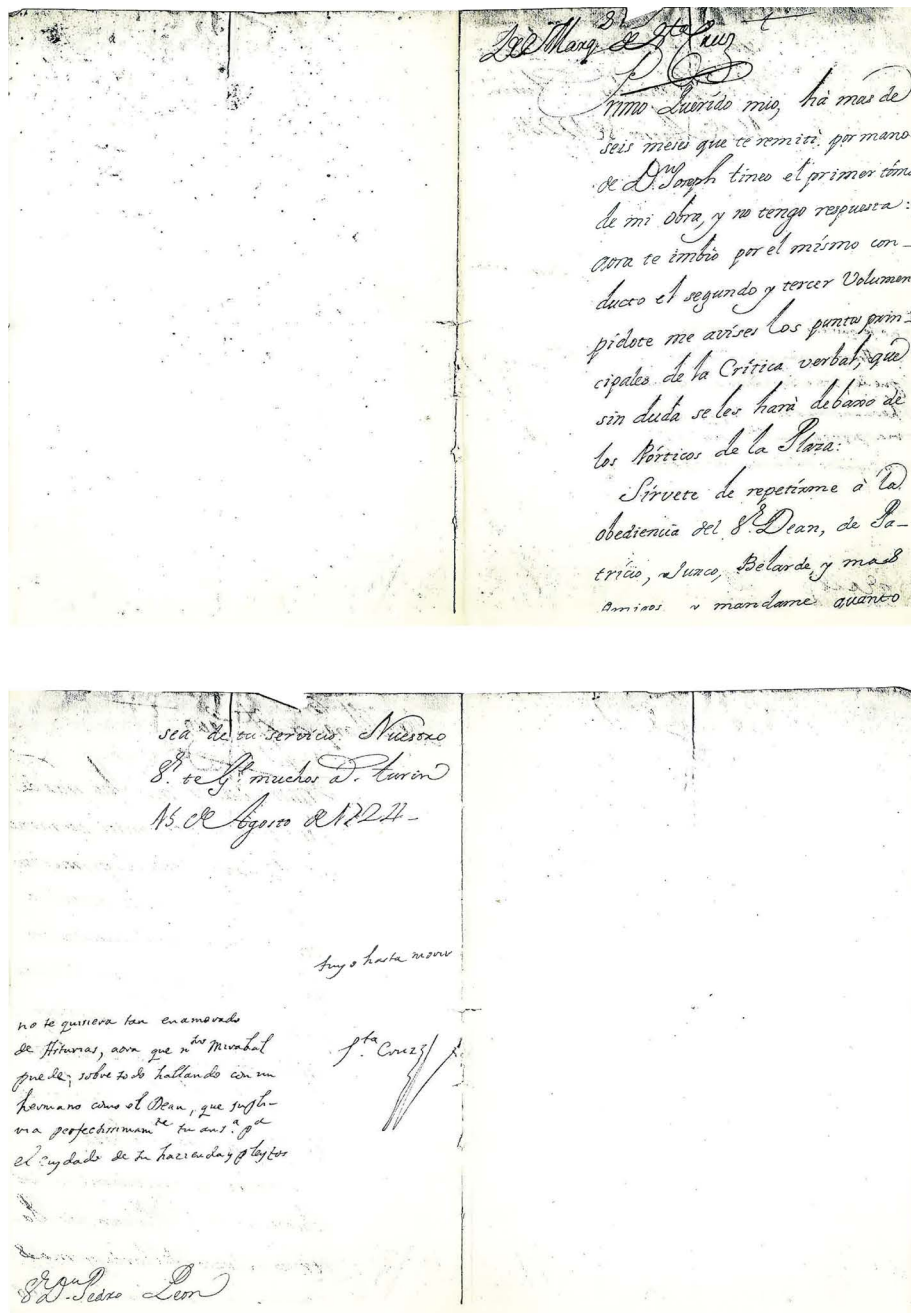 Del Marq.s de Sta Cruz
Primo Querido mio, hà mas de
seis meses que te remiti por mano
de Dn. Joseph tineo el primer tómo
de mi Obra, y no tengo respuesta:
aora te imbio por el mismo con-
ducto el segundo y tercer Volumen
pidote me avises los puntos prin-
cipales de la Crítica verbal, que
sin duda se les harà debaxo de
los Pórticos de la Plaza:
Sírvete de repetirme à la
obediencia del Sr. Dean, de Pa-
tricio, Junco, Belarde y mas
Amigos y mandame quanto
sea de tu servicio Nuestro
Sr. te Gde. muchos a.s turin
15 de Agosto de 1724-
tuyo hasta morir
Sta Cruz
no te quisiera tan enamorado
de Asturias, aora que ntro Miraval
puede; sobre todo hallando con un
hermano como el Dean, que supli-
ria perfectissimamte tu aus.a pa
el cuydado de tu hacienda y pleytos
Sr. Dn. Pedro Leon